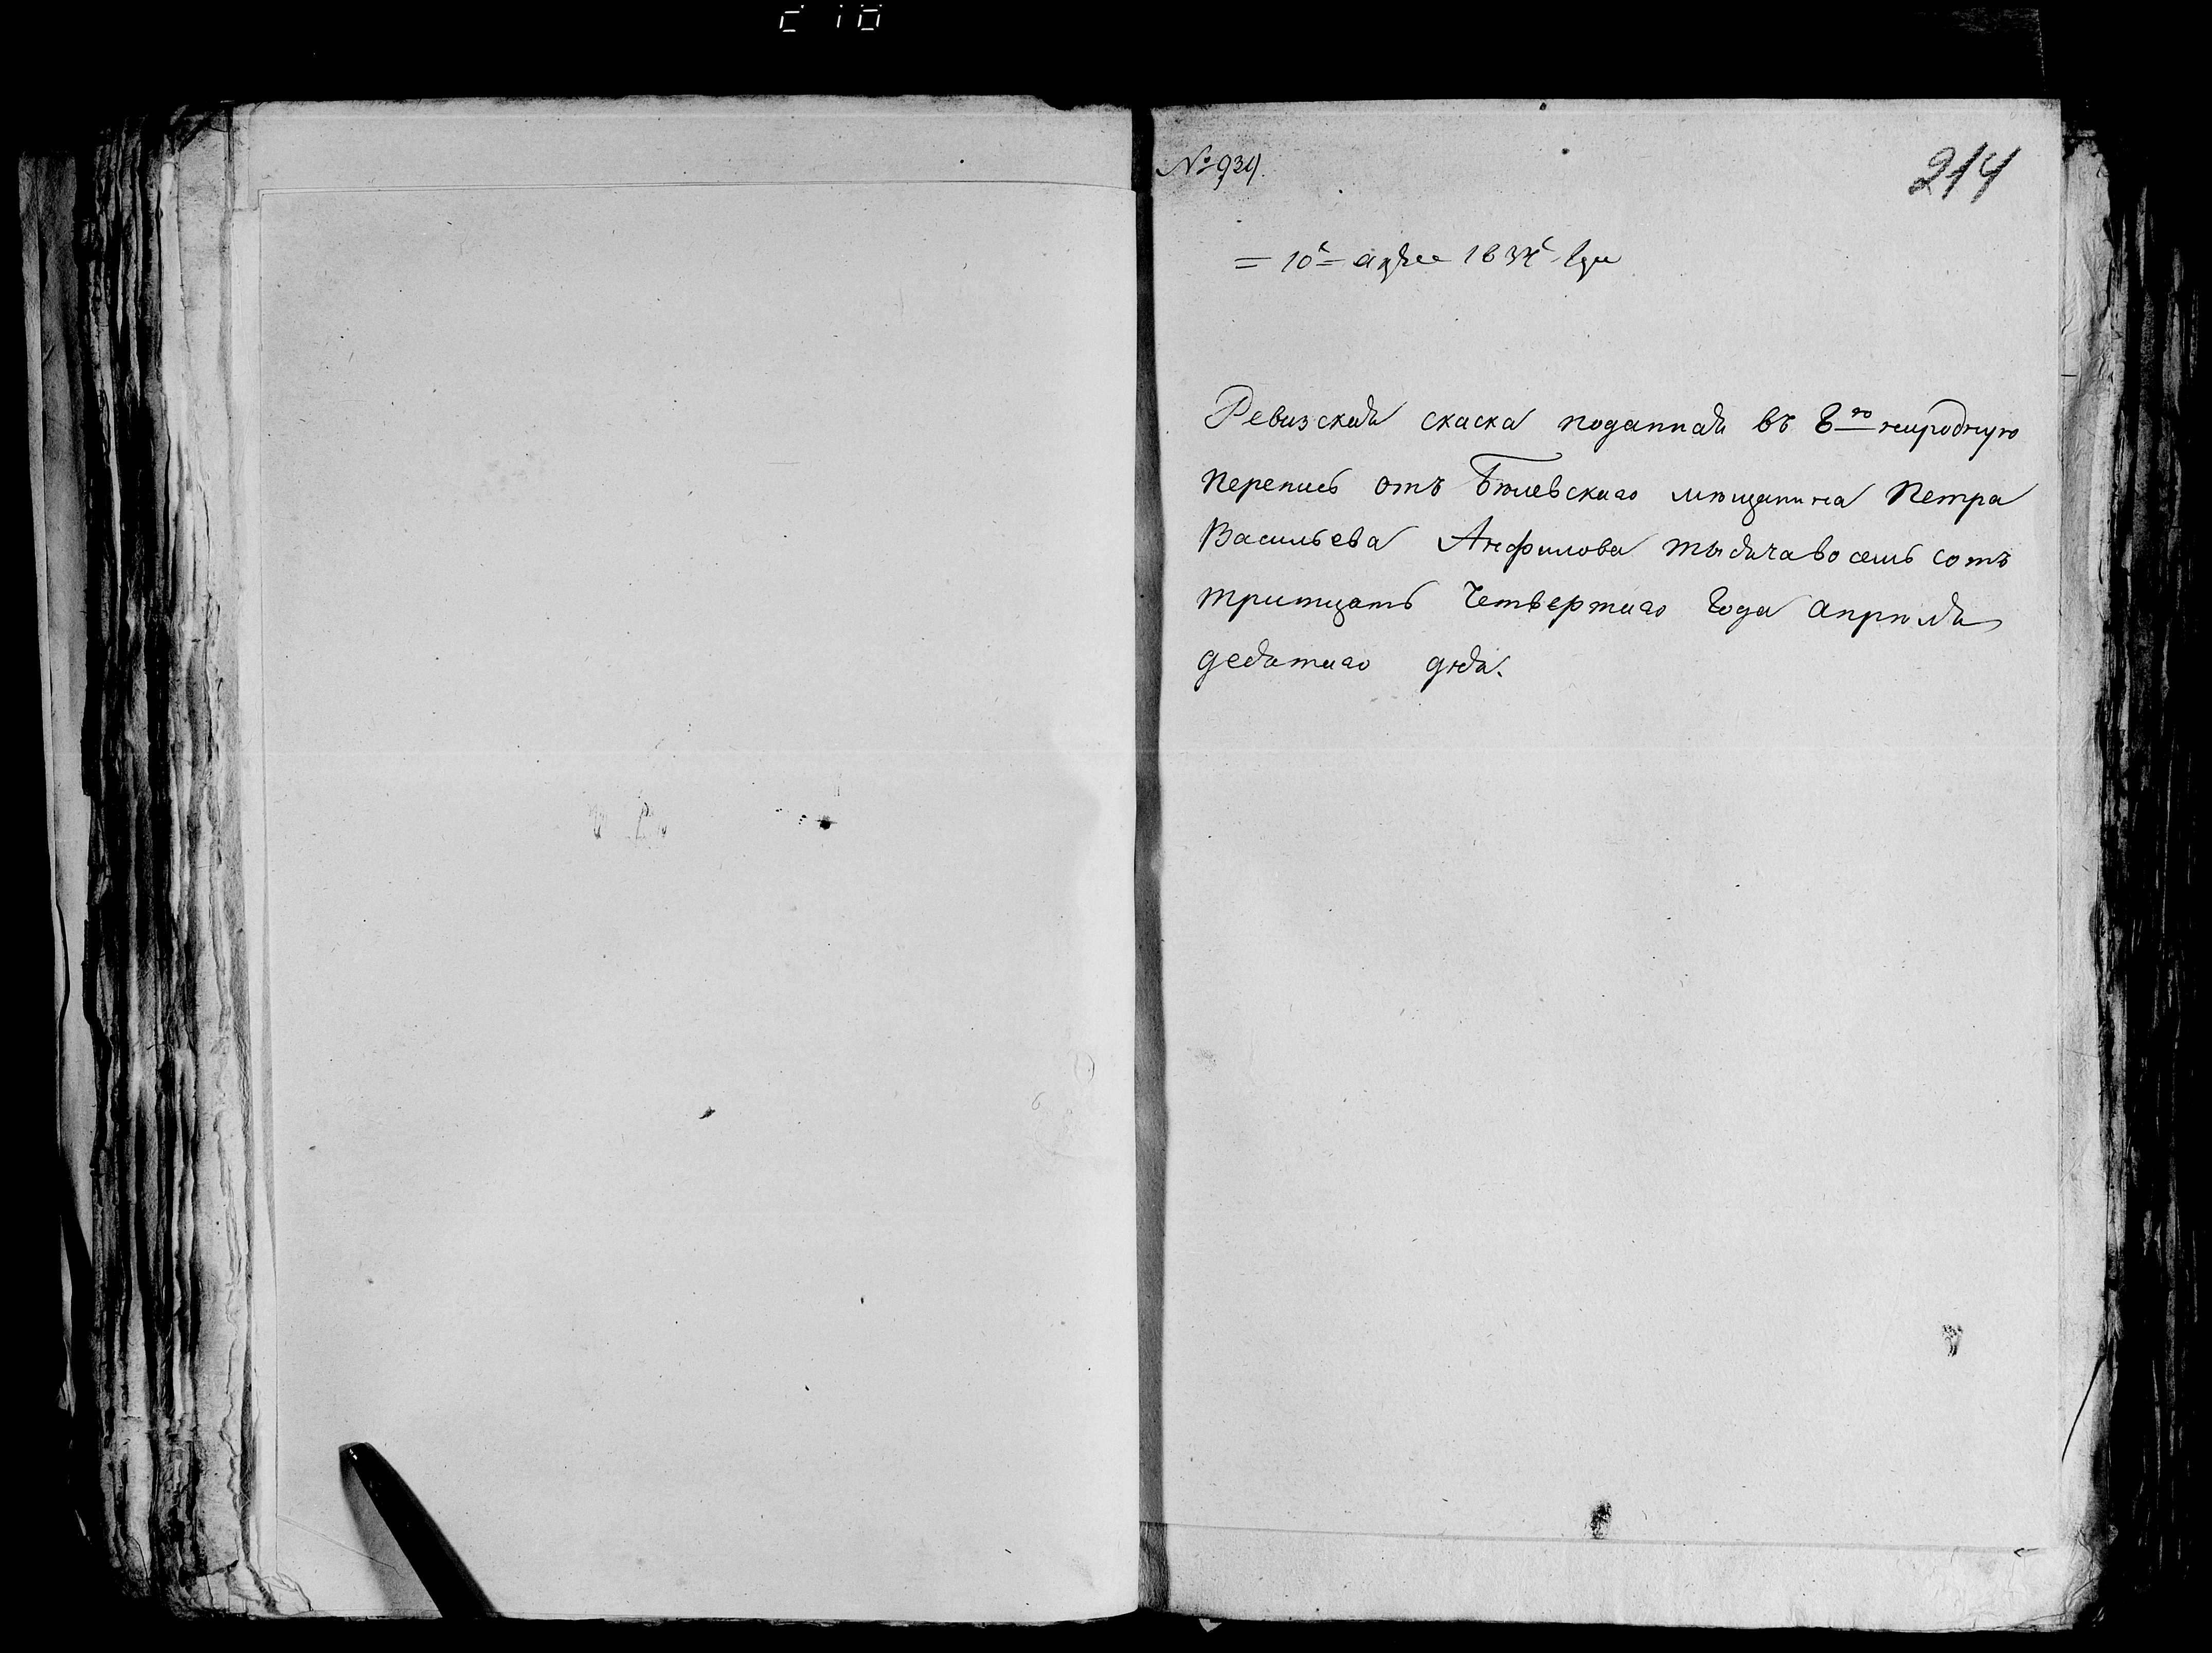 № 934.
214
= 10г= апреле 1834г года
Ревизская скаска поданная въ 8ю народную
перепись отъ Белевскаго мещанина Петра
Васильева Анфилова тысяча во семь сотъ
тритцать Четвертаго Года апреля
десятаго дня.